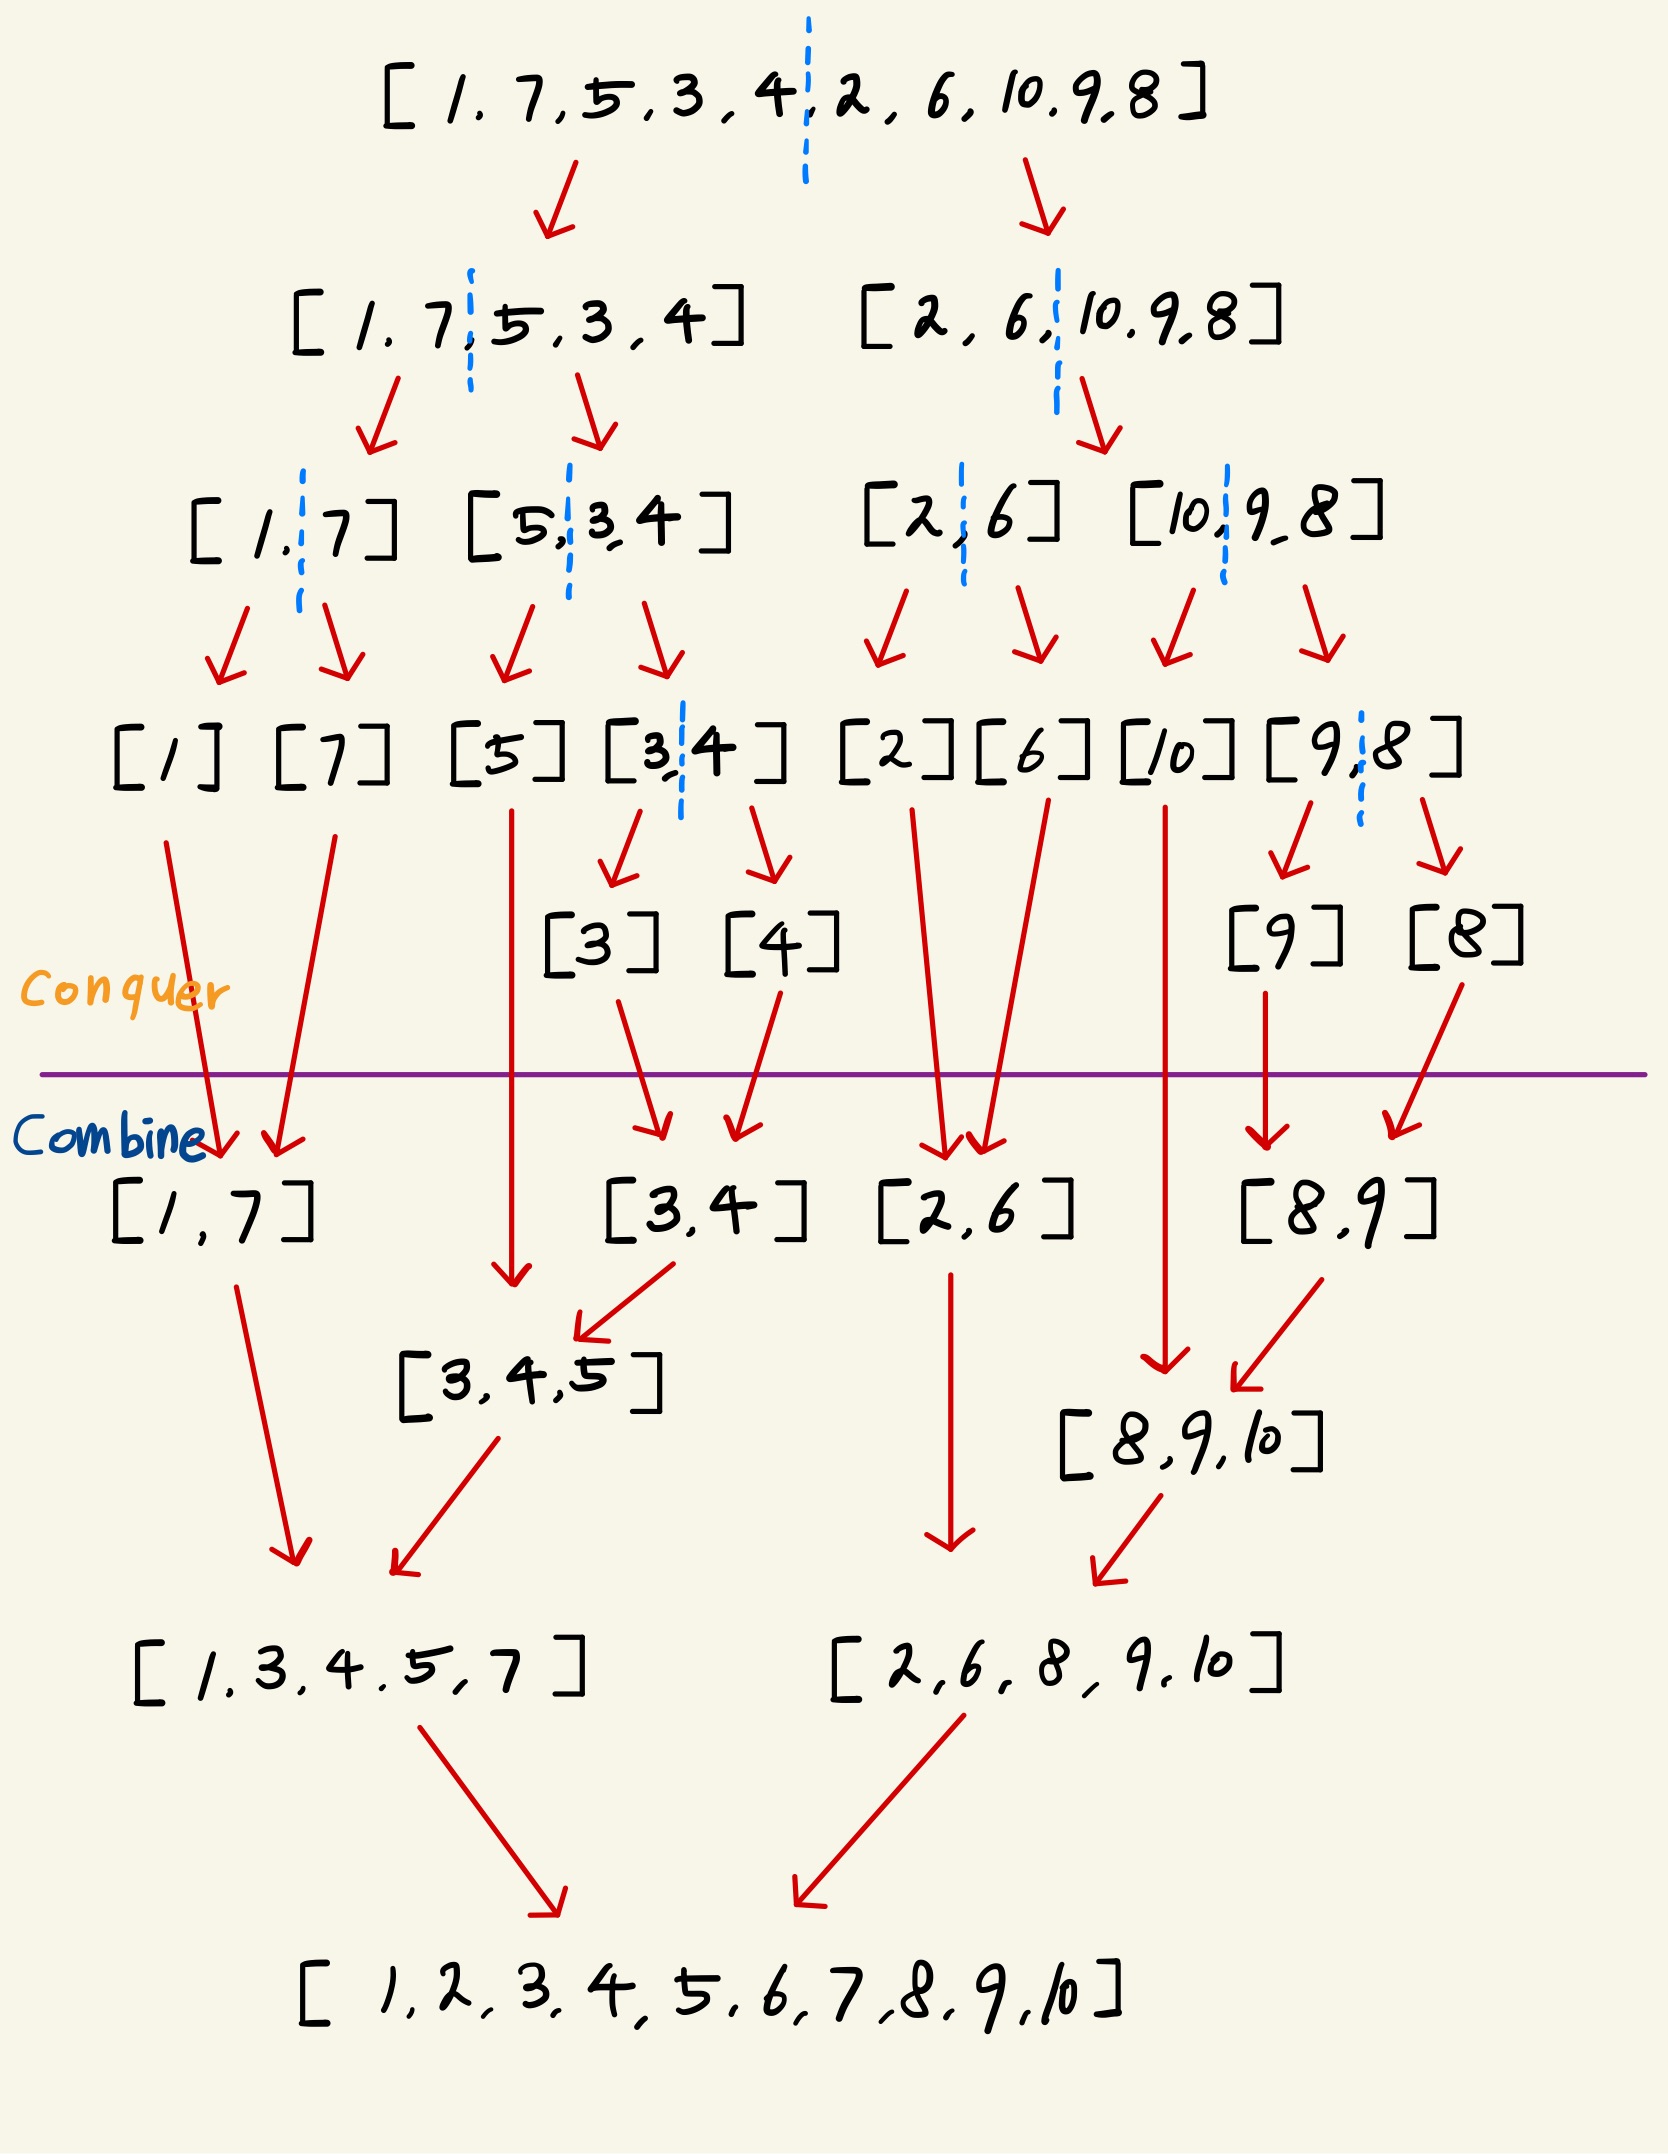 [ 1, 7, 5, 3, 4, 2, 6, 10, 9, 8 ]
[ 1, 7, 5, 3, 4 ] [ 2, 6, 10, 9, 8 ]
[ 1, 7 ] [ 5, 3, 4 ] [ 2, 6 ] [ 10, 9, 8 ]
[ 1 ] [ 7 ] [ 5 ] [ 3, 4 ] [ 2 ] [ 6 ] [ 10 ] [ 9, 8 ]
[ 3 ] [ 4 ] [ 9 ] [ 8 ]
Conquer
Combine
[ 1, 7 ] [ 3, 4 ] [ 2, 6 ] [ 8, 9 ]
[ 3, 4, 5 ]
[ 8, 9, 10 ]
[ 1, 3, 4, 5, 7 ] [ 2, 6, 8, 9, 10 ]
[ 1, 2, 3, 4, 5, 6, 7, 8, 9, 10 ]